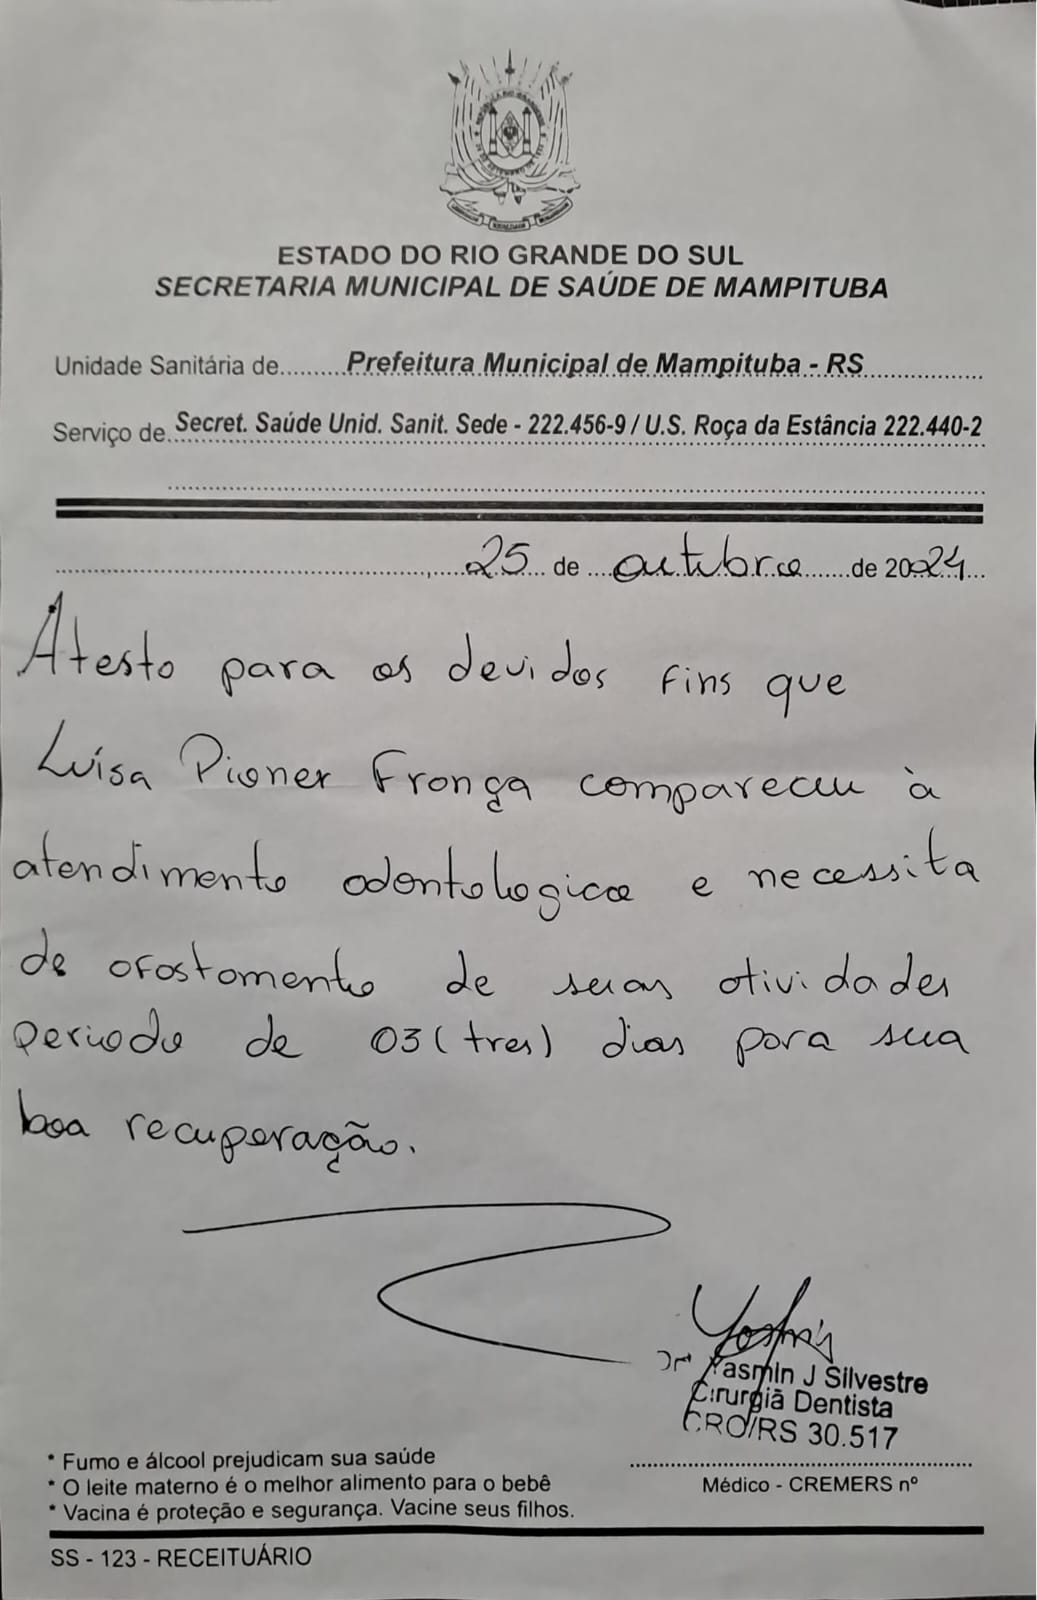 ESTADO DO RIO GRANDE DO SUL
SECRETARIA MUNICIPAL DE SAÚDE DE MAMPITUBA
Unidade Sanitária de.........Prefeitura Municipal de Mampituba - RS
Serviço de Secret. Saúde Unid. Sanit. Sede - 222.456-9 / U.S. Roça da Estância 222.440-2
25 de outubro de 2024
Atesto para os devidos fins que
Luísa Pioner França compareceu à
atendimento odontologico e necessita
de afastamento de suas atividades
periodo de 03 (tres) dias para sua
boa recuperação.
Drª Yasmin J Silvestre
Cirurgiã Dentista
CRO/RS 30.517
* Fumo e álcool prejudicam sua saúde
* O leite materno é o melhor alimento para o bebê
Médico - CREMERS nº
* Vacina é proteção e segurança. Vacine seus filhos.
SS - 123 - RECEITUÁRIO